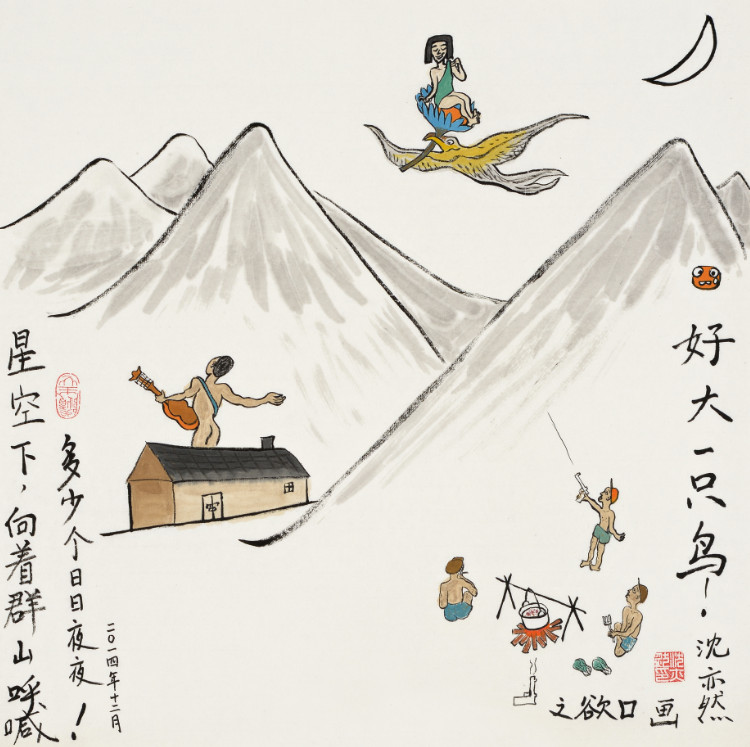 好大一只鸟！
沈亦然
画
口欲之
星空下，向着群山呼喊
多少个日日夜夜！
二〇一四年十二月